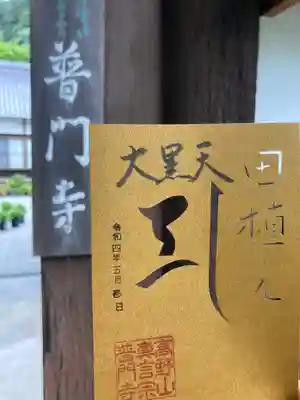 普門寺
大黒天
田植え
令和四年五月吉日
高野山
真言宗
普門寺